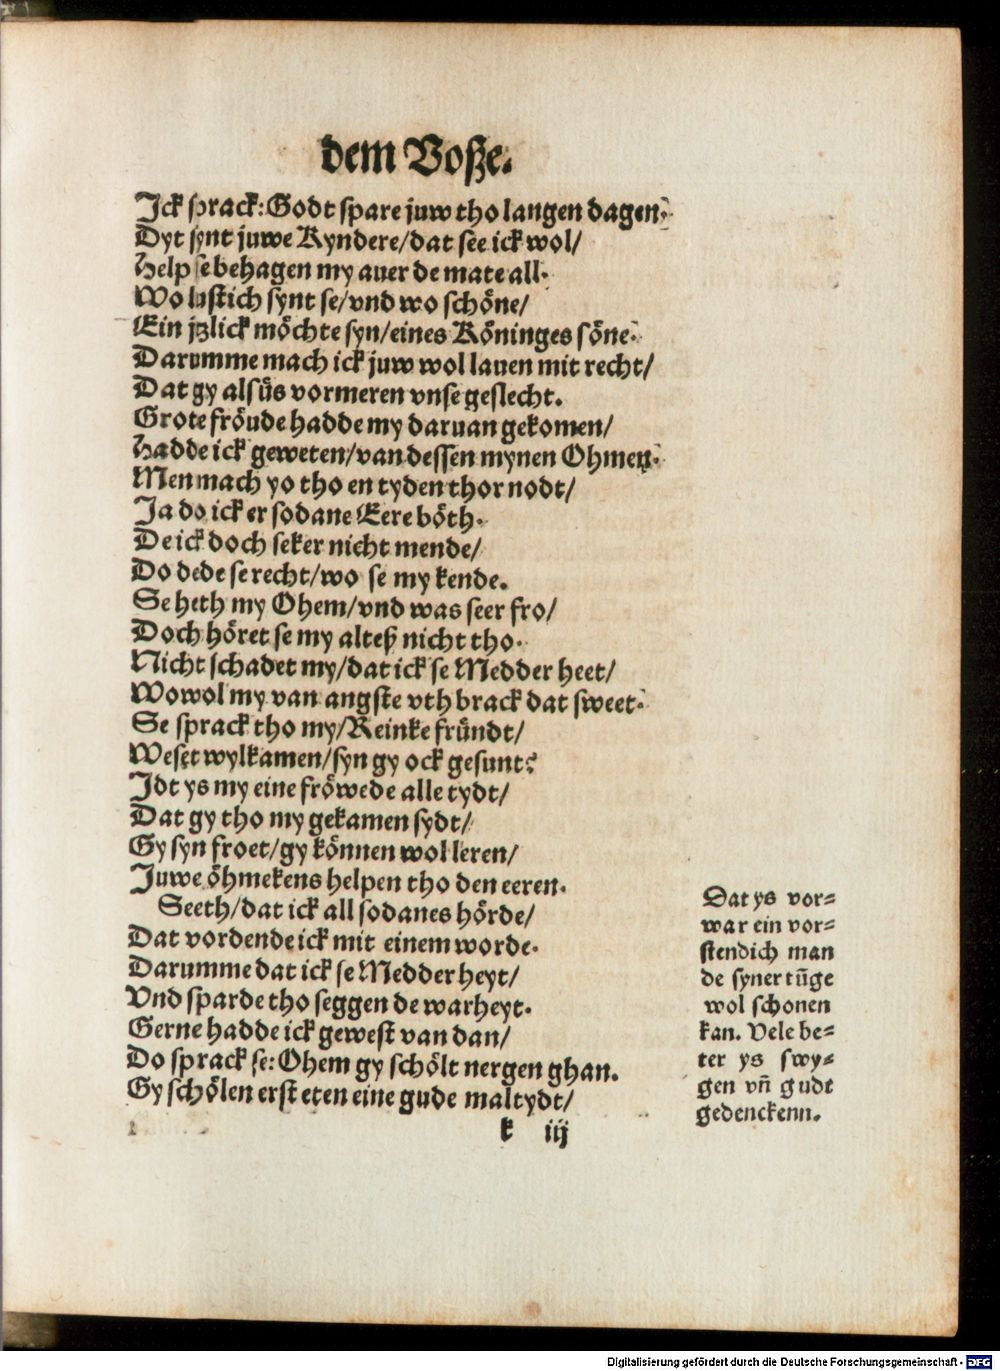 dem Voße.
Ick sprack: Godt spare juw tho langen dagen.
Dyt synt juwe Kyndere/dat see ick wol/
Help se behagen my auer de mate all.
Wo lustich synt se/vnd wo schöne/
Ein jtzlick möchte syn/eines Köninges söne.
Darumme mach ick juw wol lauen mit recht/
Dat gy alsüs vormeren vnse geslecht.
Grote fröude hadde my daruan gekomen/
Hadde ick geweten/van dessen mynen Ohmen.
Men mach yo tho en tyden thor nodt/
Ja do ick er sodane Eere böth.
De ick doch seker nicht mende/
Do dede se recht/wo se my kende.
Se heth my Ohem/vnd was seer fro/
Doch höret se my alteß nicht tho.
Nicht schadet my/dat ick se Medder heet/
Wowol my van angste vth brack dat sweet.
Se sprack tho my/Reinke fründt/
Weset wylkamen/syn gy ock gesunt?
Idt ys my eine fröwede alle tydt/
Dat gy tho my gekamen sydt/
Gy syn froet/gy können wol leren/
Juwe öhmekens helpen tho den eeren.
Seeth/dat ick all sodanes hörde/
Dat vordende ick mit einem worde.
Darumme dat ick se Medder heyt/
Vnd sparde tho seggen de warheyt.
Gerne hadde ick gewest van dan/
Do sprack se: Ohem gy schölt nergen ghan.
Gy schölen erst eten eine gude maltydt/
k iij
Dat ys vor=
war ein vor=
stendich man
de syner tūge
wol schonen
kan. Vele be=
ter ys swy=
gen vñ gudt
gedenckenn.
Digitalisierung gefördert durch die Deutsche Forschungsgemeinschaft - DFG